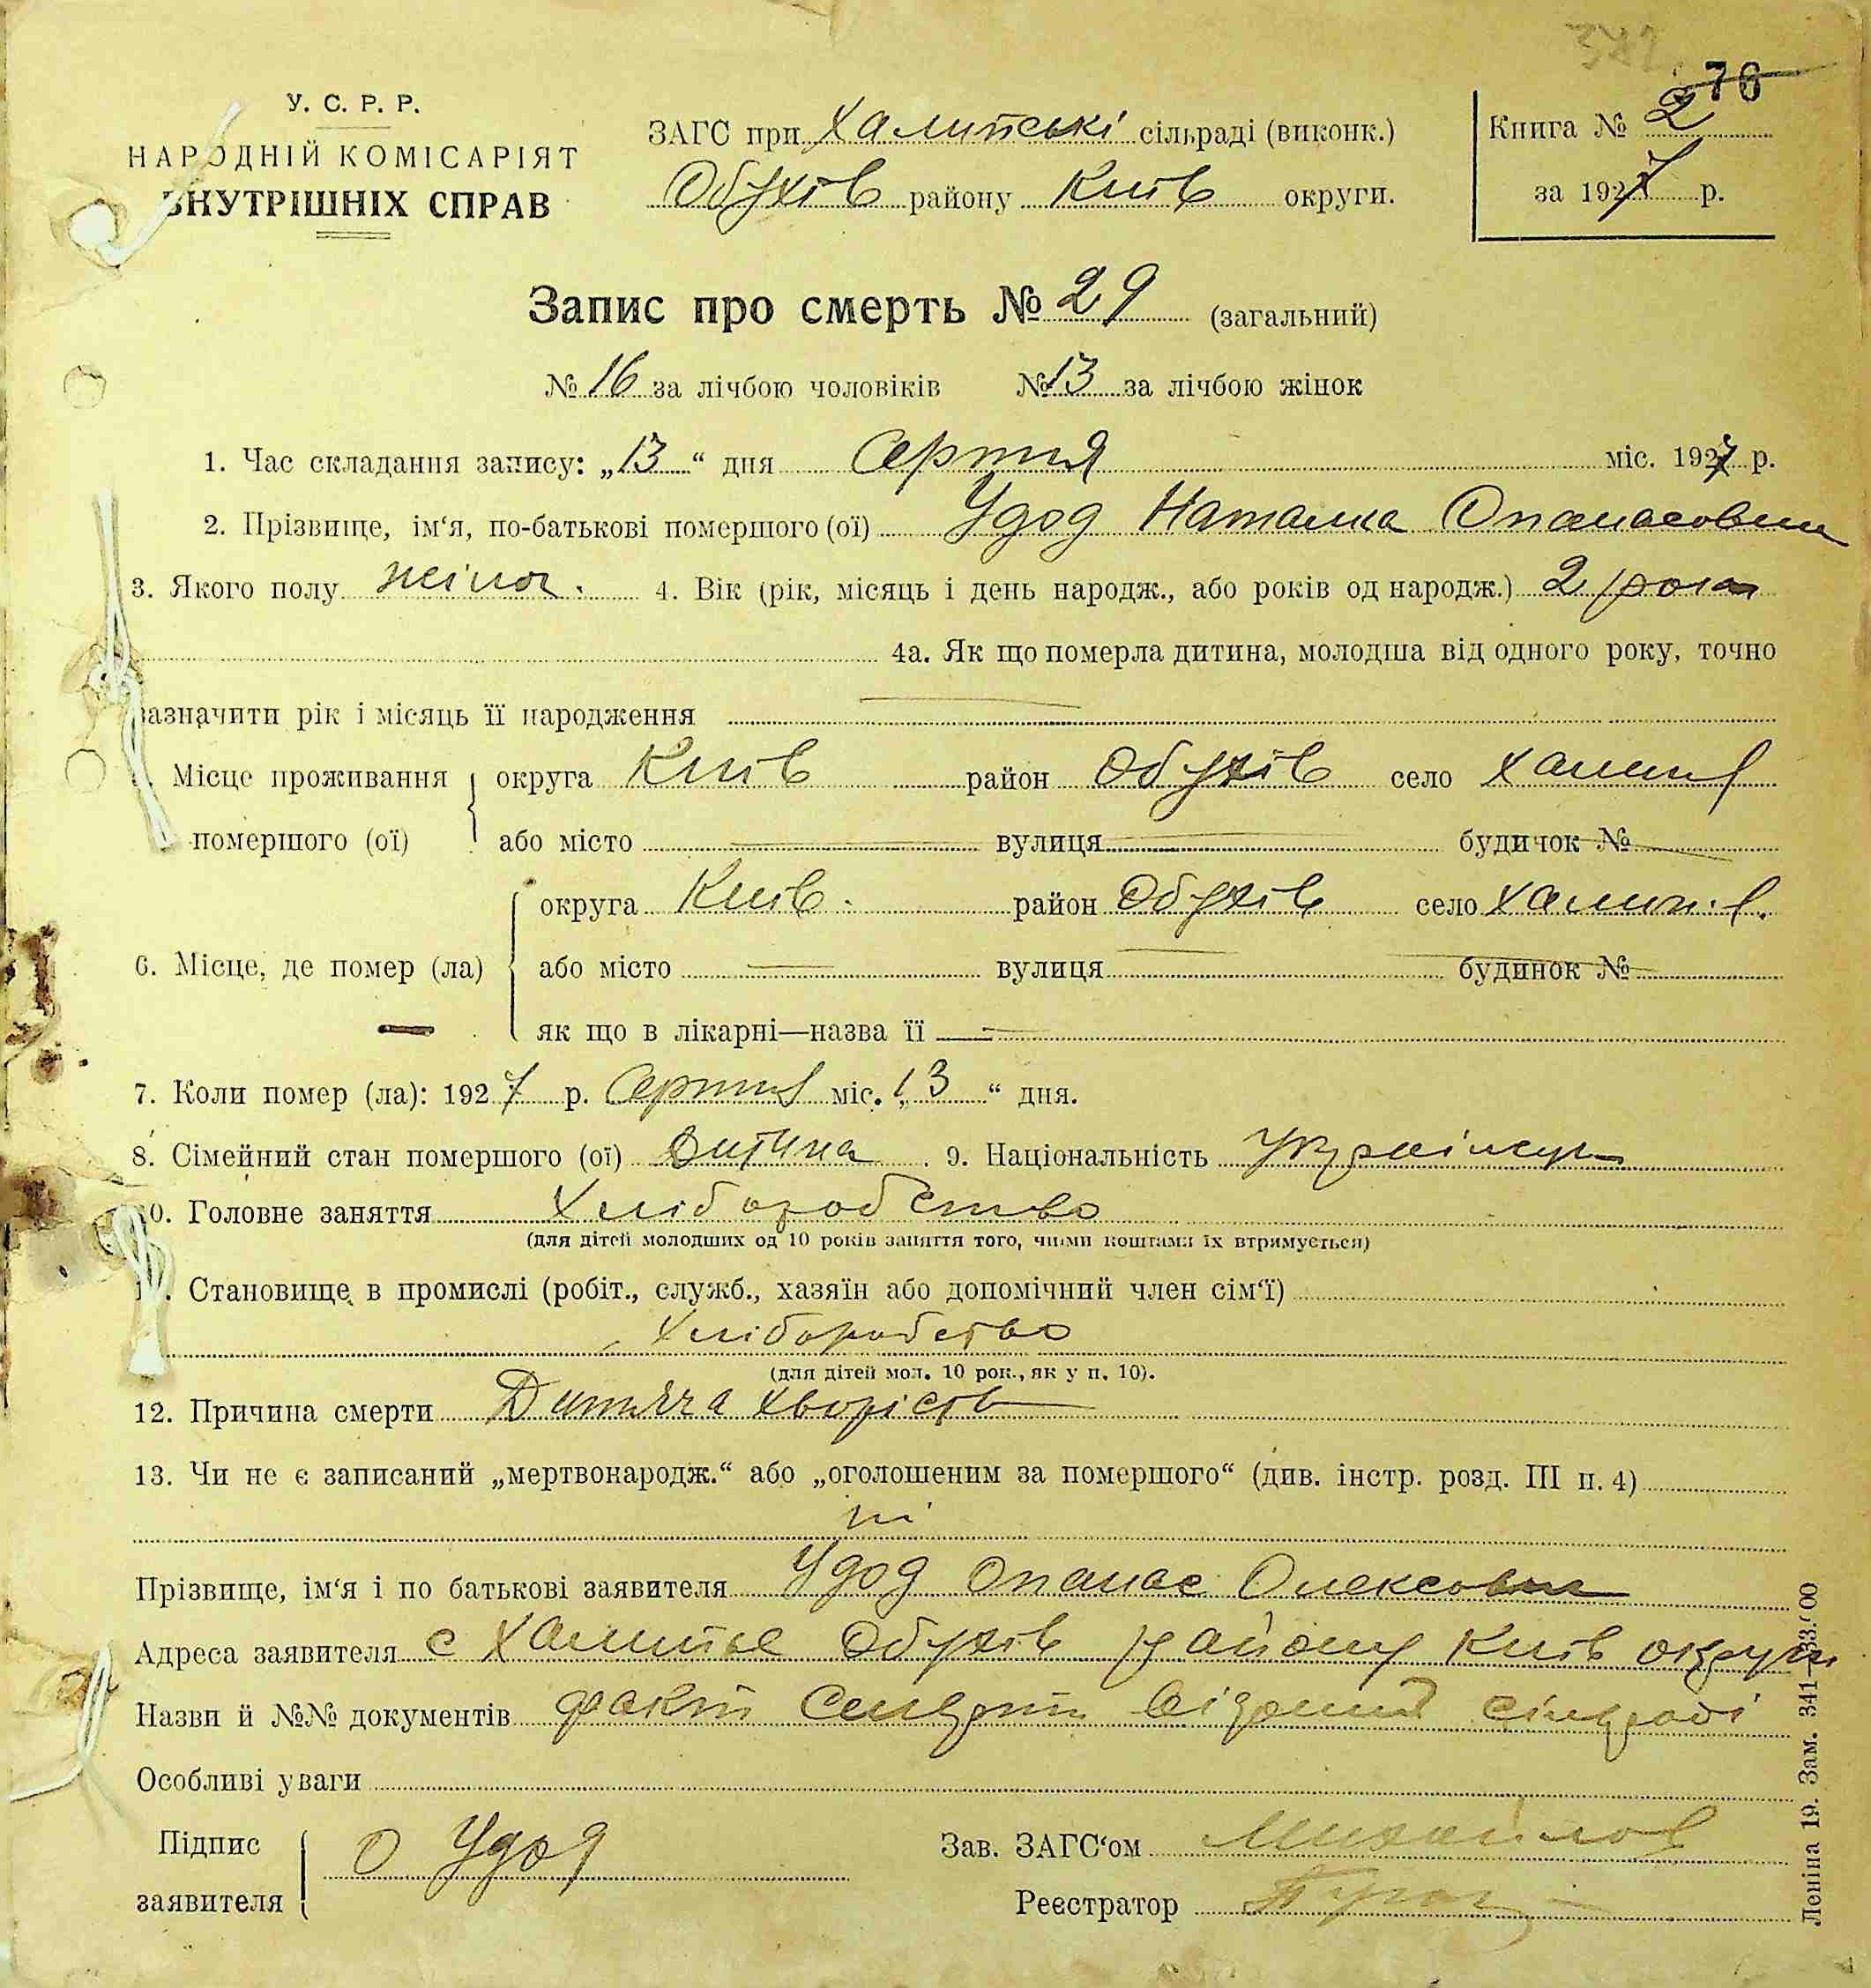 76
У. С. Р. Р.
НАРОДНІЙ КОМІСАРІЯТ
ВНУТРІШНІХ СПРАВ
ЗАГС при Халипські сільраді (виконк.)
Обухів району Київ округи.
Книга № 2
за 1927 р.
Запис про смерть № 29 (загальний)
№ 16 за лічбою чоловіків № 13 за лічбою жінок
1. Час складання запису: „13“ дня Серпня міс. 1927 р.
2. Прізвище, ім‘я, по-батькові помершого (ої) Удод Наталка Опанасовна
3. Якого полу жіноч. 4. Вік (рік, місяць і день народж., або років од народж.) 2 рока
4а. Як що померла дитина, молодша від одного року, точно
зазначити рік і місяць її народження
Місце проживання помершого (ої) округа Київ район Обухів село Халепя
або місто вулиця будинок №
6. Місце, де помер (ла) округа Київ. район Обухів село Халип.
або місто вулиця будинок №
як що в лікарні—назва її
7. Коли помер (ла): 1927 р. Серпня міс. 13“ дня.
8. Сімейний стан помершого (ої) Дитина 9. Національність Українка
10. Головне заняття Хліборобство
(для дітей молодших од 10 років заняття того, чиїми коштами їх втримується)
11. Становище в промислі (робіт., служб., хазяїн або допомічний член сім‘ї)
Хліборобство
(для дітей мол. 10 рок., як у п. 10).
12. Причина смерти Дитяча хворість
13. Чи не є записаний „мертвонародж.“ або „оголошеним за помершого“ (див. інстр. розд. III п. 4)
ні
Прізвище, ім‘я і по батькові заявителя Удод Опанас Олексович
Адреса заявителя с Халипье Обухів району Київ округи
Назви й №№ документів факт смерти відомий сільраді
Особливі уваги
Підпис заявителя О Удод
Зав. ЗАГС‘ом Михайлов
Реєстратор
Леніна 19. Зам. 341—33.000